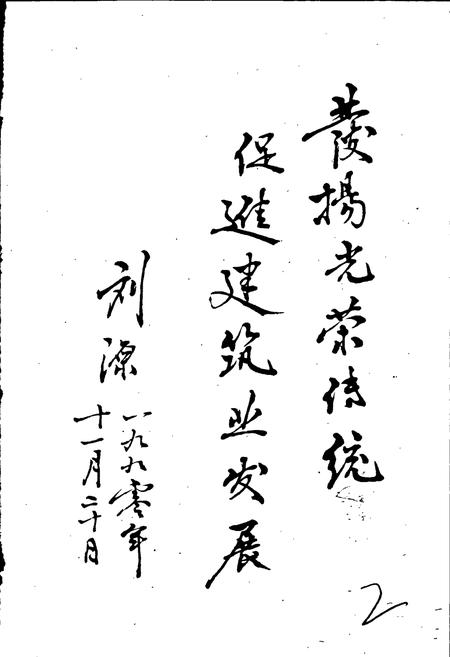 發揚光荣传统
促進建筑业发展
刘源
一九九零年
十一月二十日
2